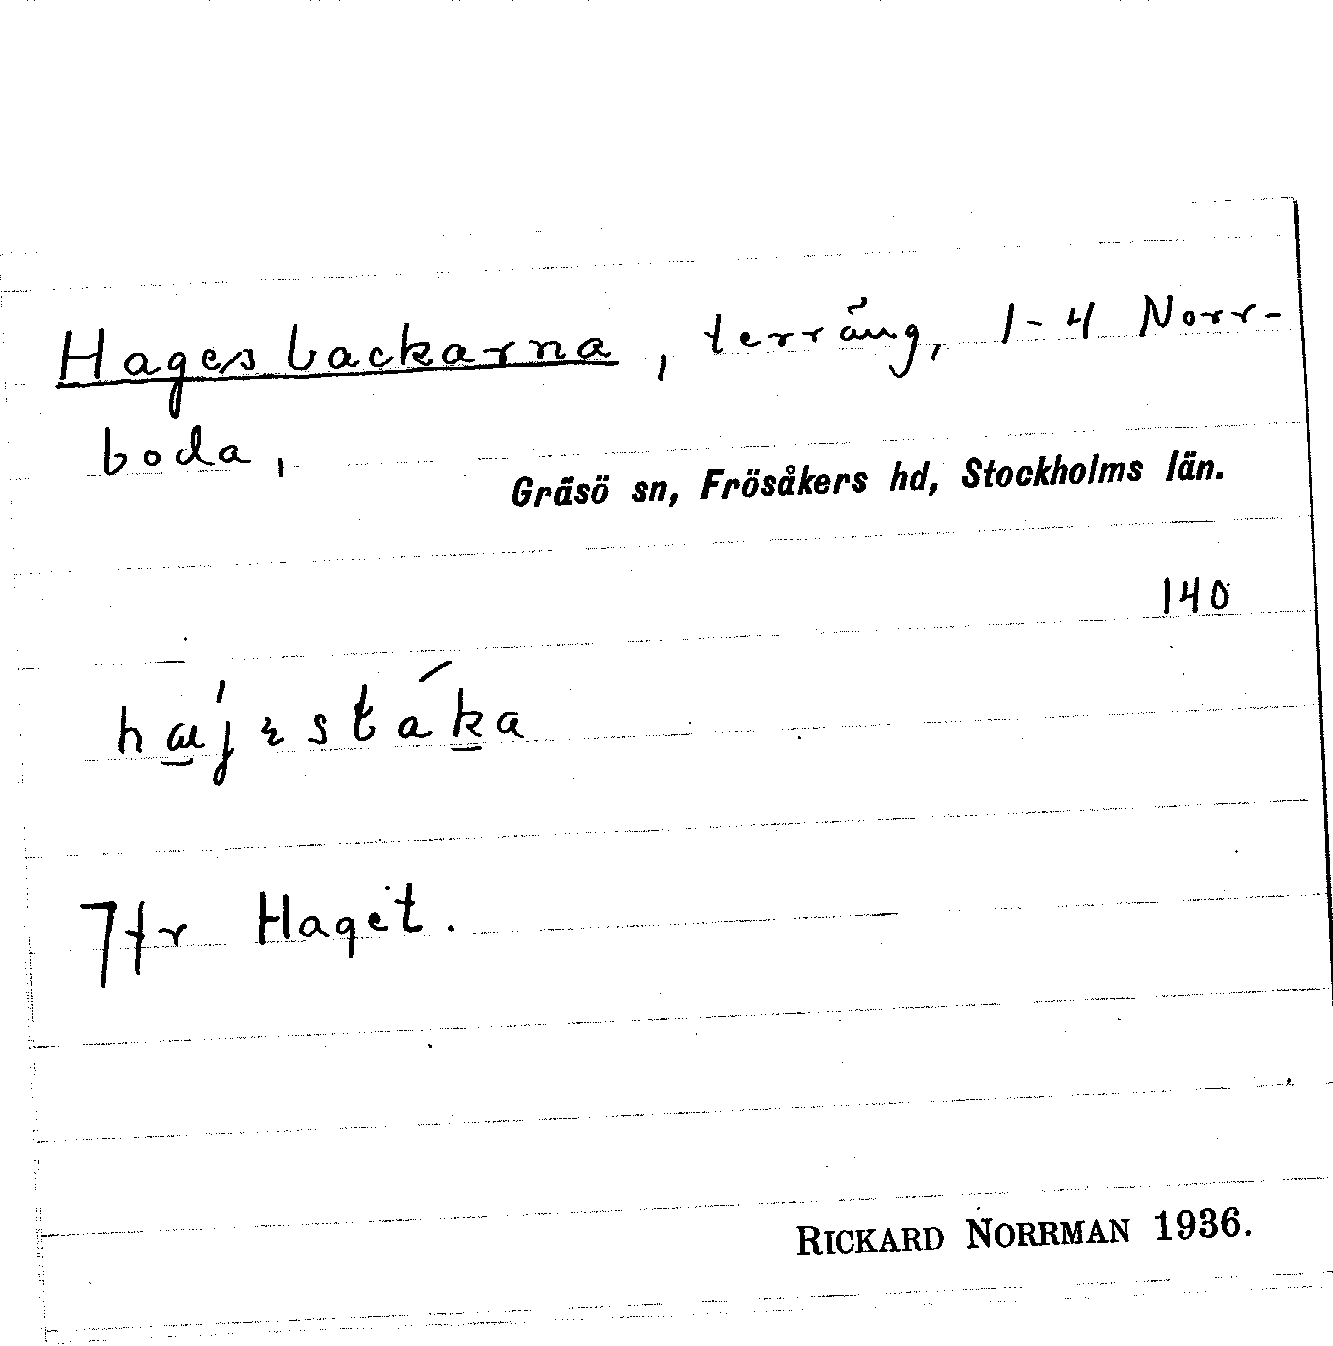 Hagesbackarna, terräng, 1-4 Norr-
boda,
Gräsö sn, Frösåkers hd, Stockholms län.
140
Jfr Haget.
RICKARD NORRMAN 1936.